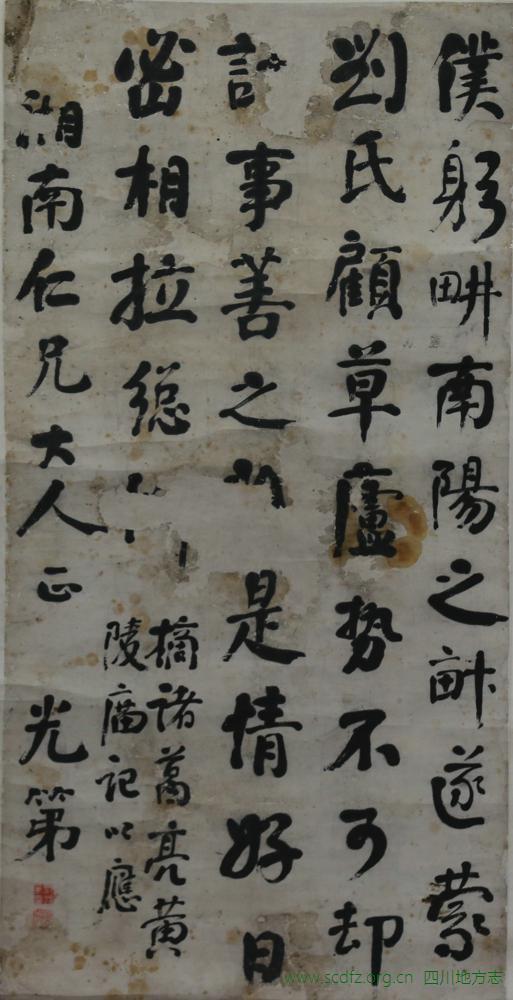 僕躬畊南陽之畝遂蒙
劉氏顧草廬勢不可却
計事善之是情好日
密相拉總
摘諸葛亮黃
陵廟記以應
湘南仁兄大人正 光第
www.scdfz.org.cn 四川地方志